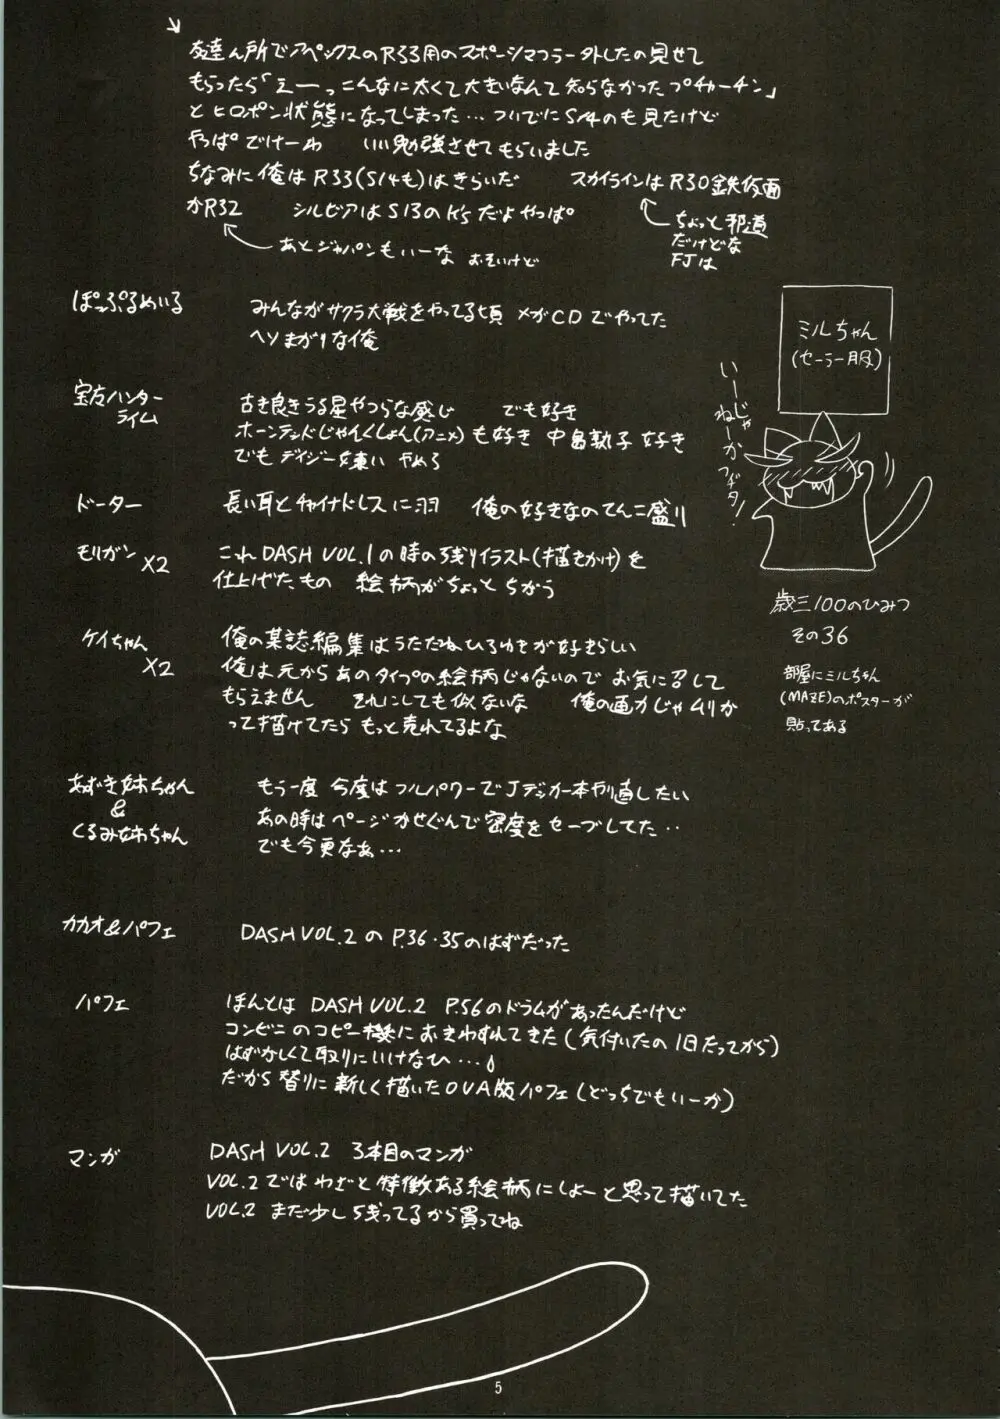 友達ん所でアペックスのR33用のスポーツマフラー外したの見せて
もらったら「えーっこんなに太くて大きいなんて知らなかったプチカーチン」
とヒロポン状態になってしまった…ついでにS14のも見たけど
やっぱでけーわ　いい勉強させてもらいました
ちなみに俺はR33(S14も)はきらいだ　スカイラインはR30鉄仮面
かR32　シルビアはS13のK'sだよやっぱ
ちょっと邪道
だけどな
FJは
あとジャパンもいーな おそいけど
ぽっぷるめいる
みんながサクラ大戦をやってる頃 メガCDでやってた
ヘソまがりな俺
宝魔ハンター
ライム
古き良きうる星やつらな感じ　でも好き
ホーンテッドじゃんくしょん(アニメ)も好き 中島敦子 好き
でもデイジー嫌い やめろ
ドーター
長い耳とチャイナドレスに羽　俺の好きなのてんこ盛り
モリガン
X2
これDASH VOL.1の時の残りイラスト(描きかけ)を
仕上げたもの 絵柄がちょっとちがう
ケイちゃん
X2
俺の某誌編集はうたたねひろゆきが好きらしい
俺は元からあのタイプの絵柄じゃないのでお気に召して
もらえません　それにしても似ないな　俺の画力じゃムリか
って描けてたらもっと売れてるよな
あずき姉ちゃん
&
くるみ姉ちゃん
もう一度 今度はフルパワーでJデッカー本列直したい
あの時はページかせぐんで密度をセーブしてた‥
でも今更なあ…
カカオ&パフェ
DASH VOL.2の P.36・35のはずだった
パフェ
ほんとは DASH VOL.2 P.56のドラムがあったんだけど
コンビニのコピー機におきわすれてきた(気付いたの1日たってから)
はずかしくて取りにいけなひ…
だから替りに新しく描いたOVA版パフェ(どっちでもいーか)
マンガ
DASH VOL.2 3本目のマンガ
VOL.2ではわざと特徴ある絵柄にしよーと思って描いてた
VOL.2 まだ少し残ってるから買ってね
ミルちゃん
(セーラー服)
いーじゃ
ねーか
歳三100のひみつ
その36
部屋にミルちゃん
(MAZE)のポスターが
貼ってある
5